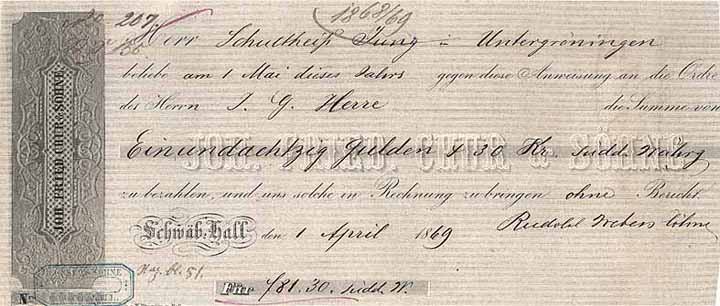 No 207.
1868/69
Herr Schultheiß Jung in Untergröningen
beliebe am 1 Mai dieses Jahrs gegen diese Anweisung an die Ordre
des Herrn J. G. Herre die Summe von
Einundachtzig Gulden & 30 Kr. südd. Währg
JOH. FRIED. CHUR & SÖHNE
zu bezahlen, und uns solche in Rechnung zu bringen ohne Bericht
Schwäb. Hall den 1 April 1869
Rudolf Webers Söhne
Haz. bl. 51.
f 81.30. südd. W.
JOH. FRIED. CHUR & SÖHNE
No